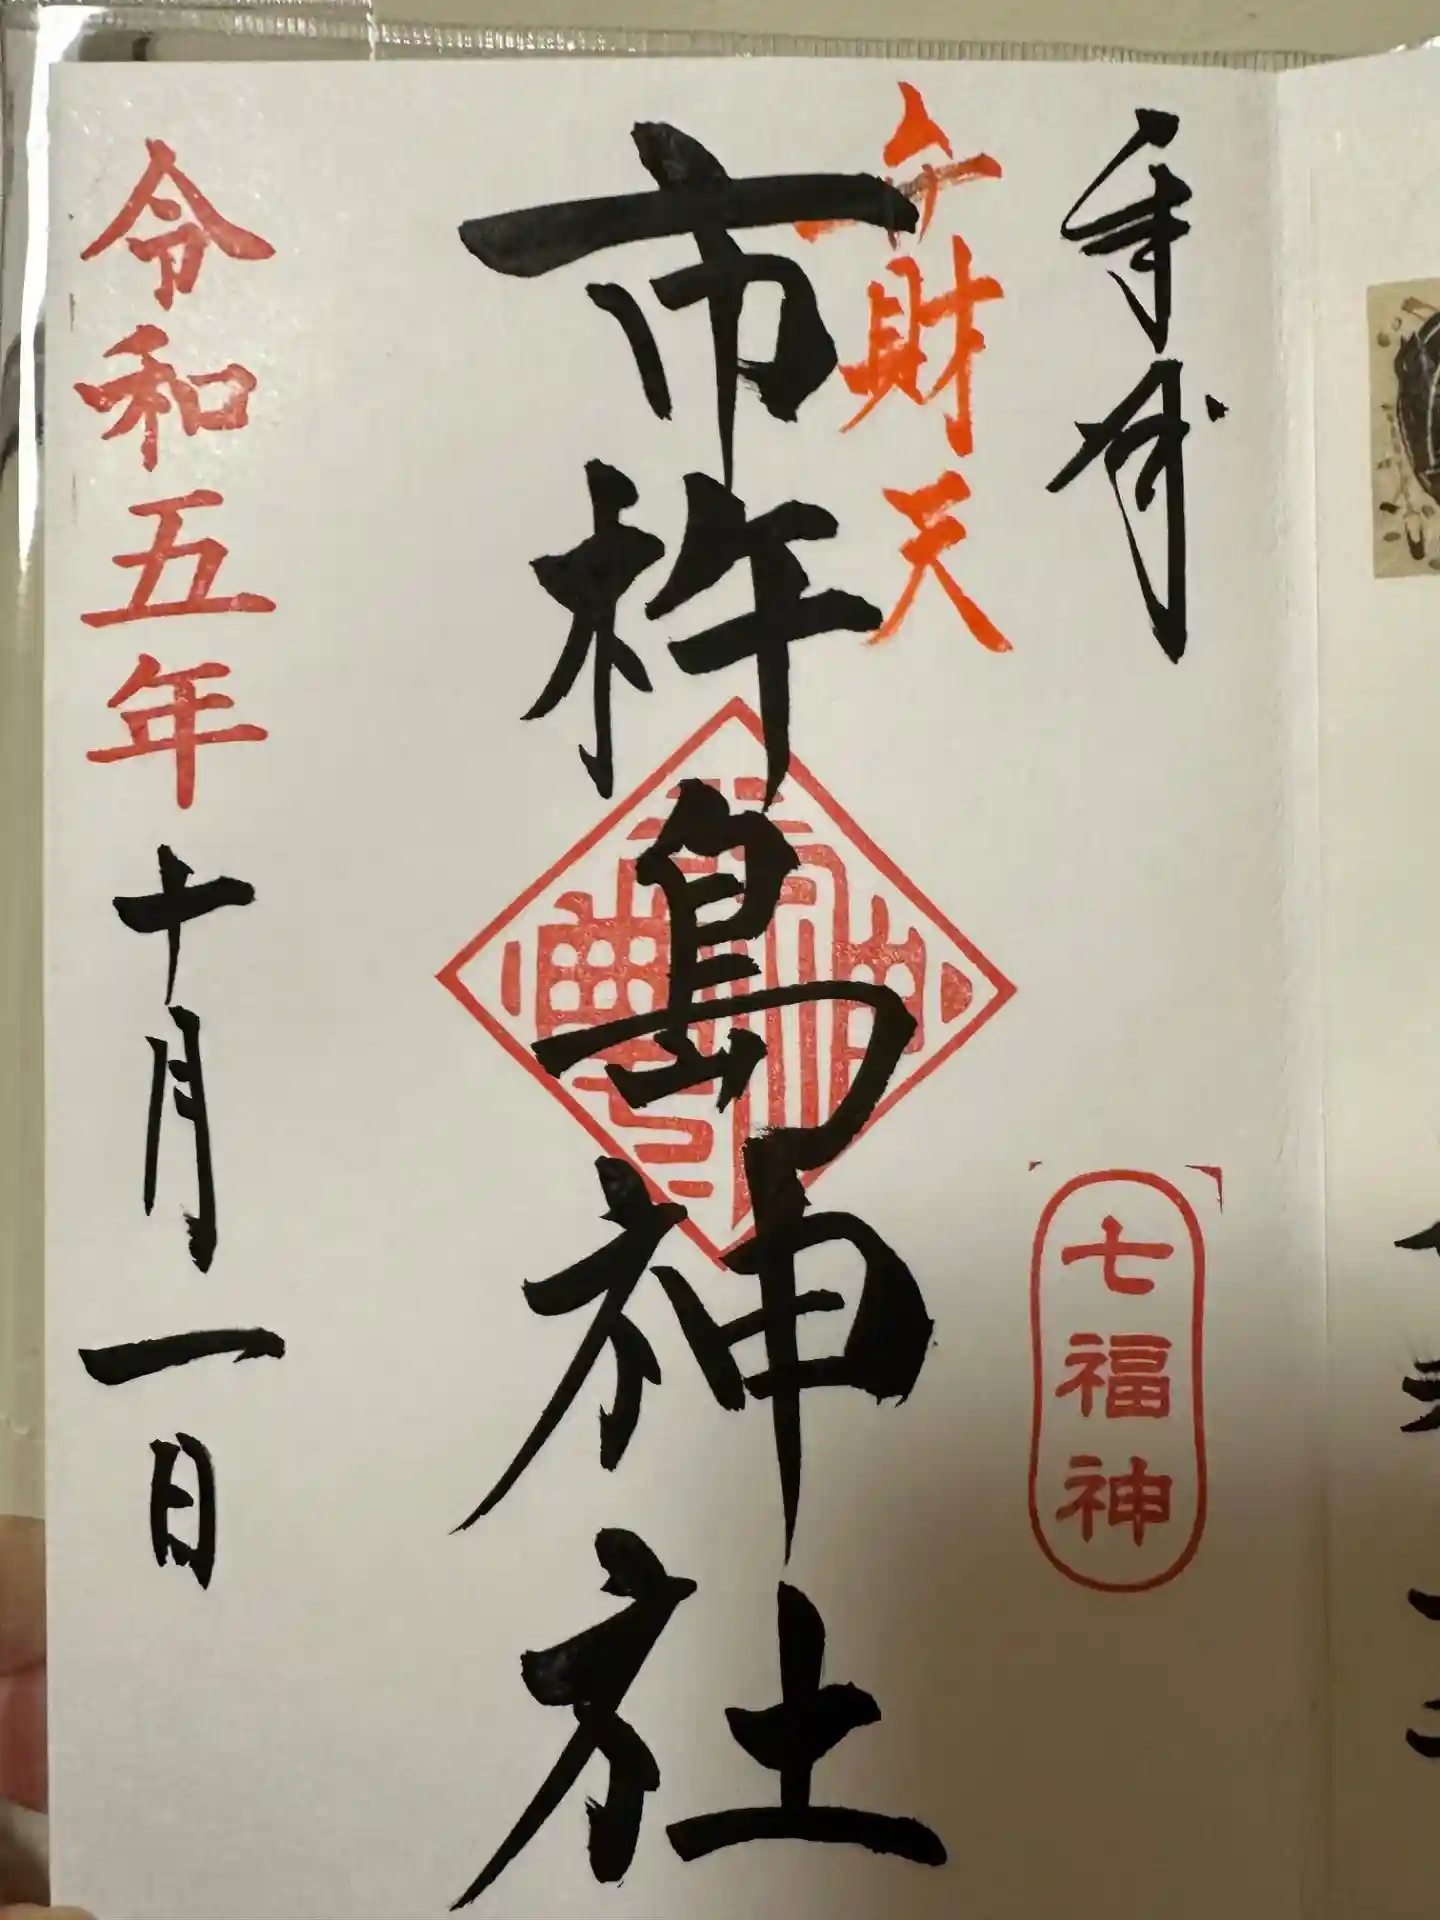 奉拝
弁財天
七福神
市杵島神社
令和五年十月一日